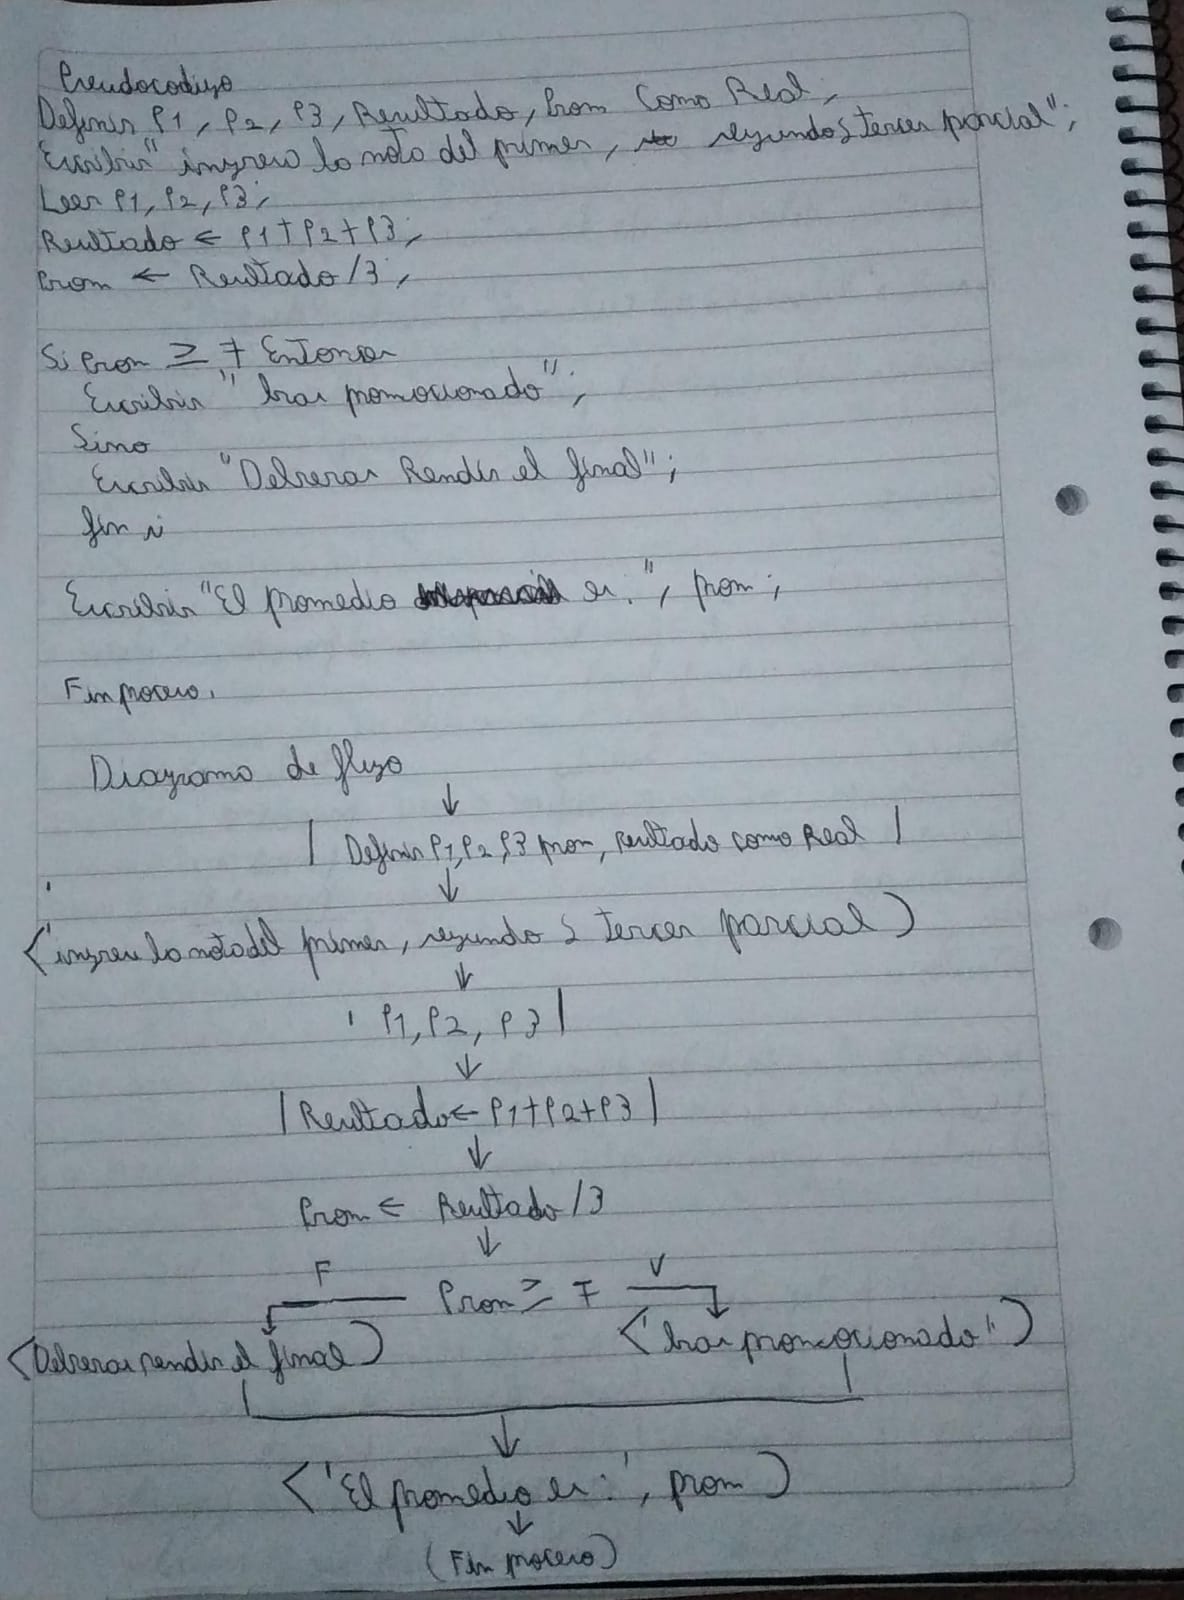 Pseudocodigo
Definir P1, P2, P3, Resultado, Prom Como Real;
Escribir "ingrese la nota del primer, segundo y tercer parcial";
Leer P1, P2, P3;
Resultado ← P1+P2+P3;
Prom ← Resultado/3;
Si Prom ≥ 7 Entonces
Escribir "has promocionado";
Sino
Escribir "Deberas Rendir el final";
fin si
Escribir "El promedio es:", prom;
Fin proceso.
Diagrama de flujo
Definir P1, P2, P3 prom, resultado como Real
ingrese la nota del primer, segundo y tercer parcial
P1, P2, P3
Resultado ← P1+P2+P3
Prom ← Resultado/3
F Prom ≥ 7 V
Deberas rendir el final "has promocionado"
'El promedio es:', prom
(Fin proceso)